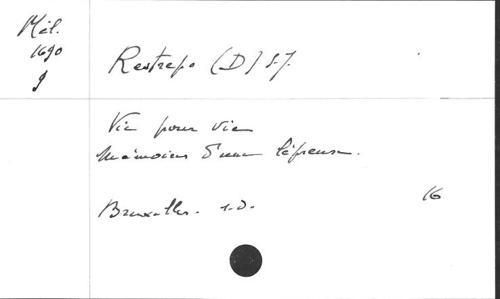 Mél.
1690
9
Restrepo (D) S.J.
Vie pour vie
Mémoires d'une lépreuse.
Bruxelles. s.d.
16